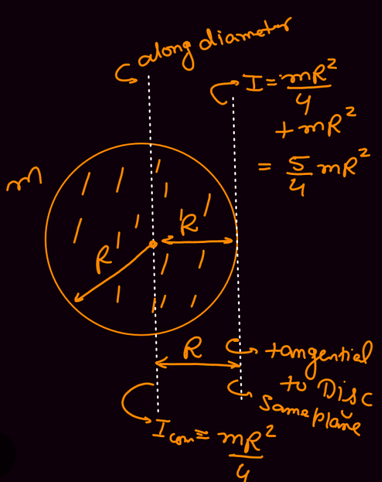 along diameter
I = mR²/4
+ mR²
= 5/4 mR²
m
R
R
R
tangential
to Disc
same plane
I com = mR²/4